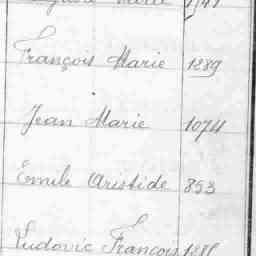 François Marie 1289
Jean Marie 1074
Emile Aristide 853
Ludovic François